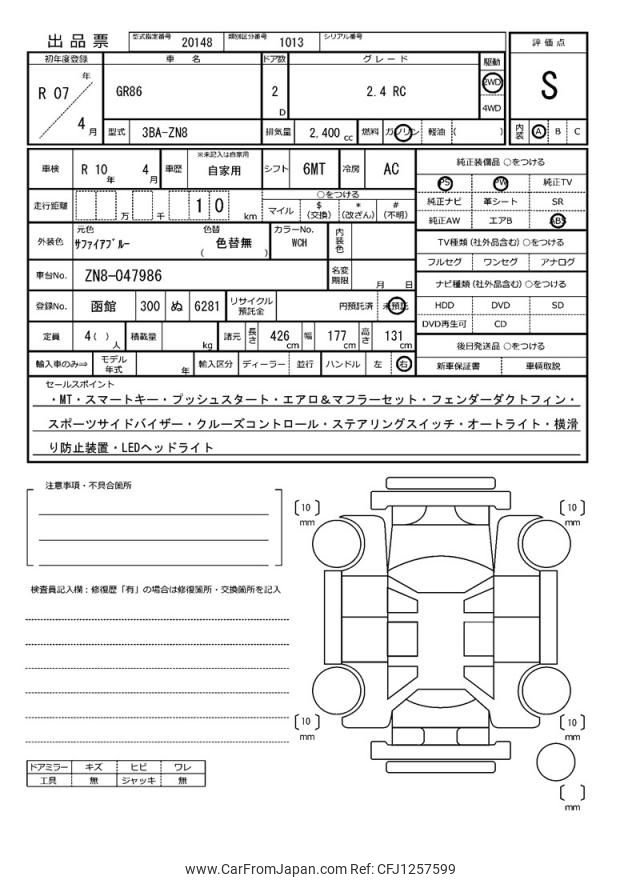 出品票 型式指定番号 20148 類別区分番号 1013 シリアル番号
初年度登録 車名 ドア数 グレード 駆動 評価点
R 07 年 4 月 GR86 2 D 2.4 RC 2WD 4WD S
型式 3BA-ZN8 排気量 2,400 cc 燃料 ガソリン 軽油 ( ) 内装 A B C
車検 R 10 年 4 月 車歴 ※未記入は自家用 自家用 シフト 6MT 冷房 AC 純正装備品 ○をつける
PS PW 純正TV
走行距離 万 千 1 0 km ○をつける マイル $ (交換) * (改ざん) # (不明) 純正ナビ 革シート SR
純正AW エアB ABS
外装色 元色 サファイアブルー 色替 ( 色替無 ) カラーNo. WCH 内装色 TV種類 (社外品含む) ○をつける
フルセグ ワンセグ アナログ
車台No. ZN8-047986 名変期限 月 日 ナビ種類 (社外品含む) ○をつける
登録No. 函館 300 ぬ 6281 リサイクル預託金 円預託済 未預託 HDD DVD SD
DVD再生可 CD
定員 4( ) 人 積載量 kg 諸元 長さ 426 cm 幅 177 cm 高さ 131 cm 後日発送品 ○をつける
輸入車のみ⇒ モデル年式 年 輸入区分 ディーラー 並行 ハンドル 左 右 新車保証書 車輌取説
セールスポイント
・MT・スマートキー・プッシュスタート・エアロ＆マフラーセット・フェンダーダクトフィン・
スポーツサイドバイザー・クルーズコントロール・ステアリングスイッチ・オートライト・横滑
り防止装置・LEDヘッドライト
注意事項・不具合箇所
[10] mm [10] mm
検査員記入欄：修復歴「有」の場合は修復箇所・交換箇所を記入
[10] mm [10] mm
ドアミラー キズ ヒビ ワレ
工具 無 ジャッキ 無
[ ] mm
www.CarFromJapan.com Ref: CFJ1257599